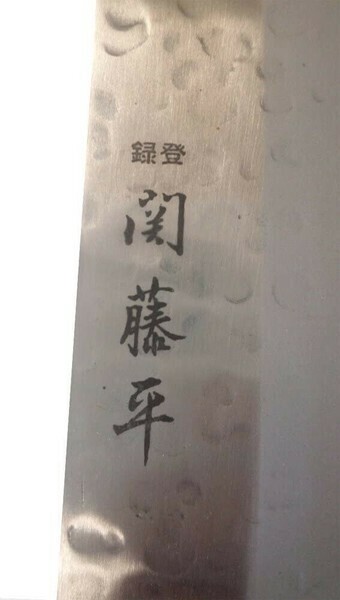 登録
関藤平